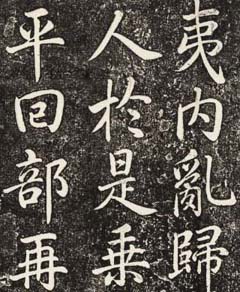 夷内亂歸
人於是乗
平回部再